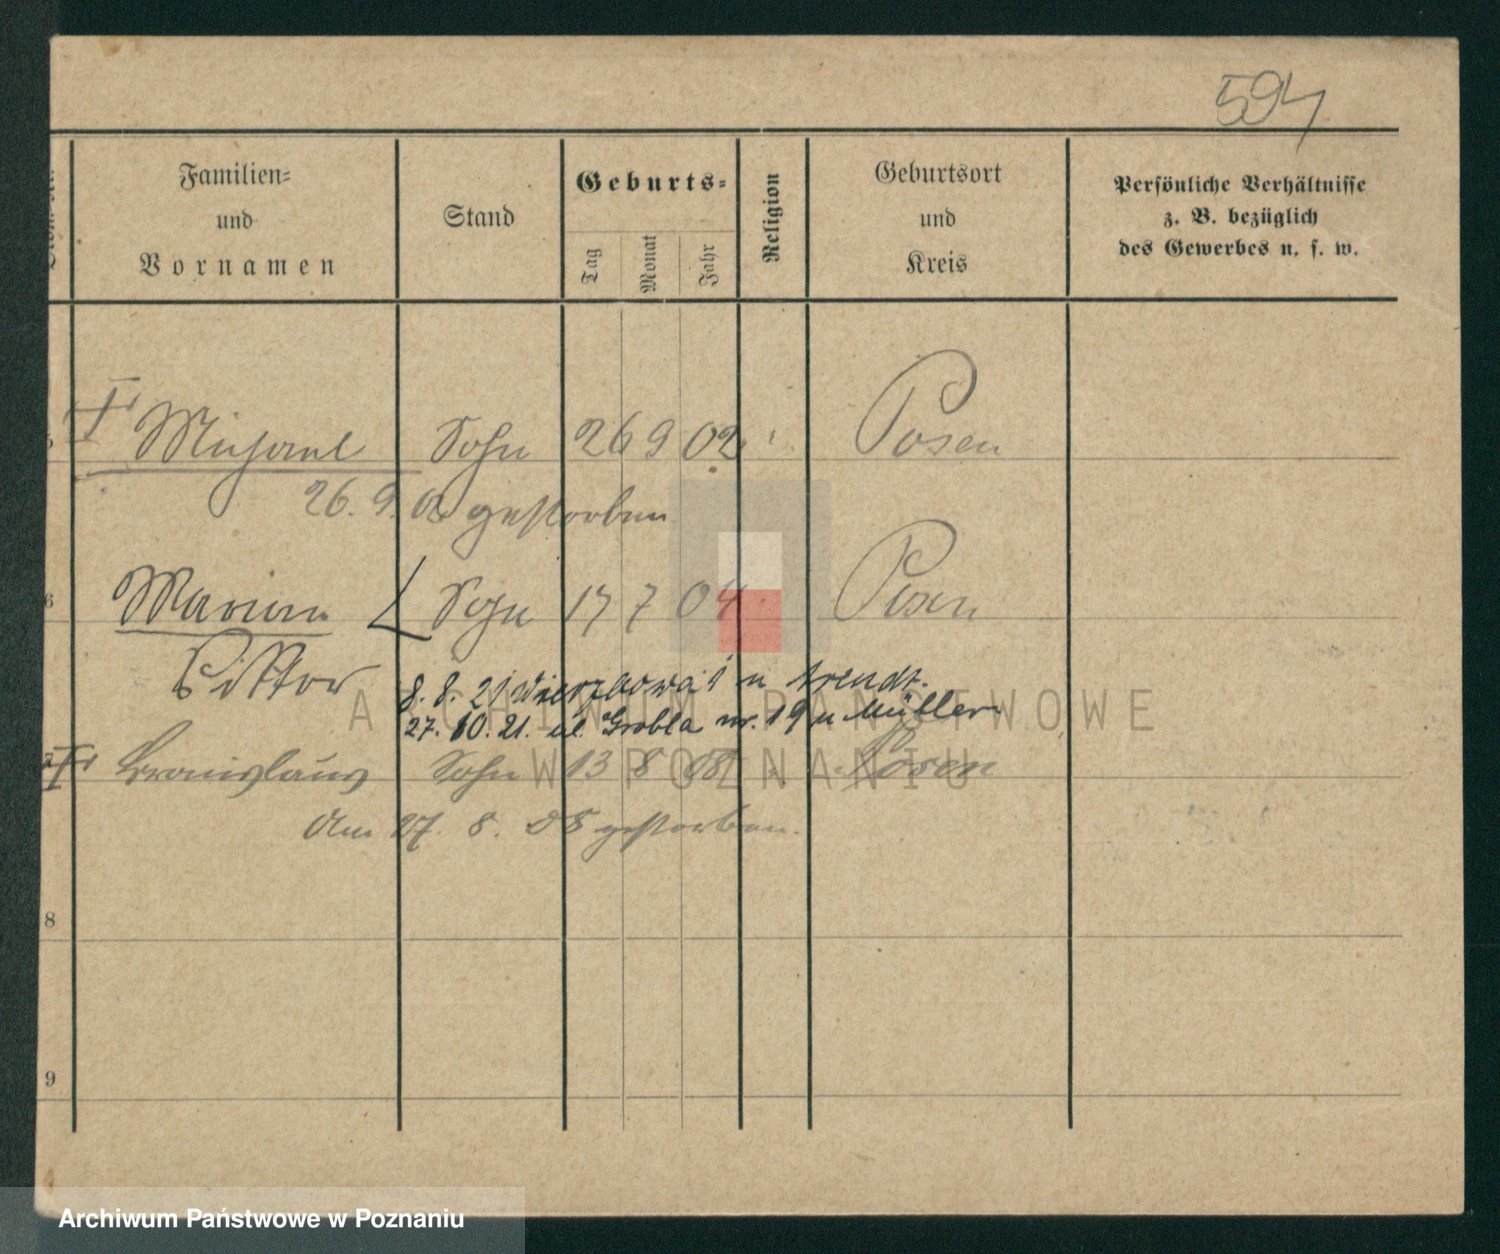 594
Familien=
und
Vornamen
Stand
Geburts=
Tag
Monat
Jahr
Religion
Geburtsort
und
Kreis
Persönliche Verhältnisse
z. B. bezüglich
des Gewerbes u. s. w.
Michael Sohn 26 9 02 Posen
26. 9. 02 gestorben
6 Marian Sohn 17 7 04 Posen
8. 8. 21 Wierzbowa 1 u Arendt.
27. 10. 21. ul. Grobla nr. 19 u Müller
Bronislaus Sohn 13 8 08 Posen
Am 27. 8. 08 gestorben.
8
9
ARCHIWUM PAŃSTWOWE
W POZNANIU
Archiwum Państwowe w Poznaniu